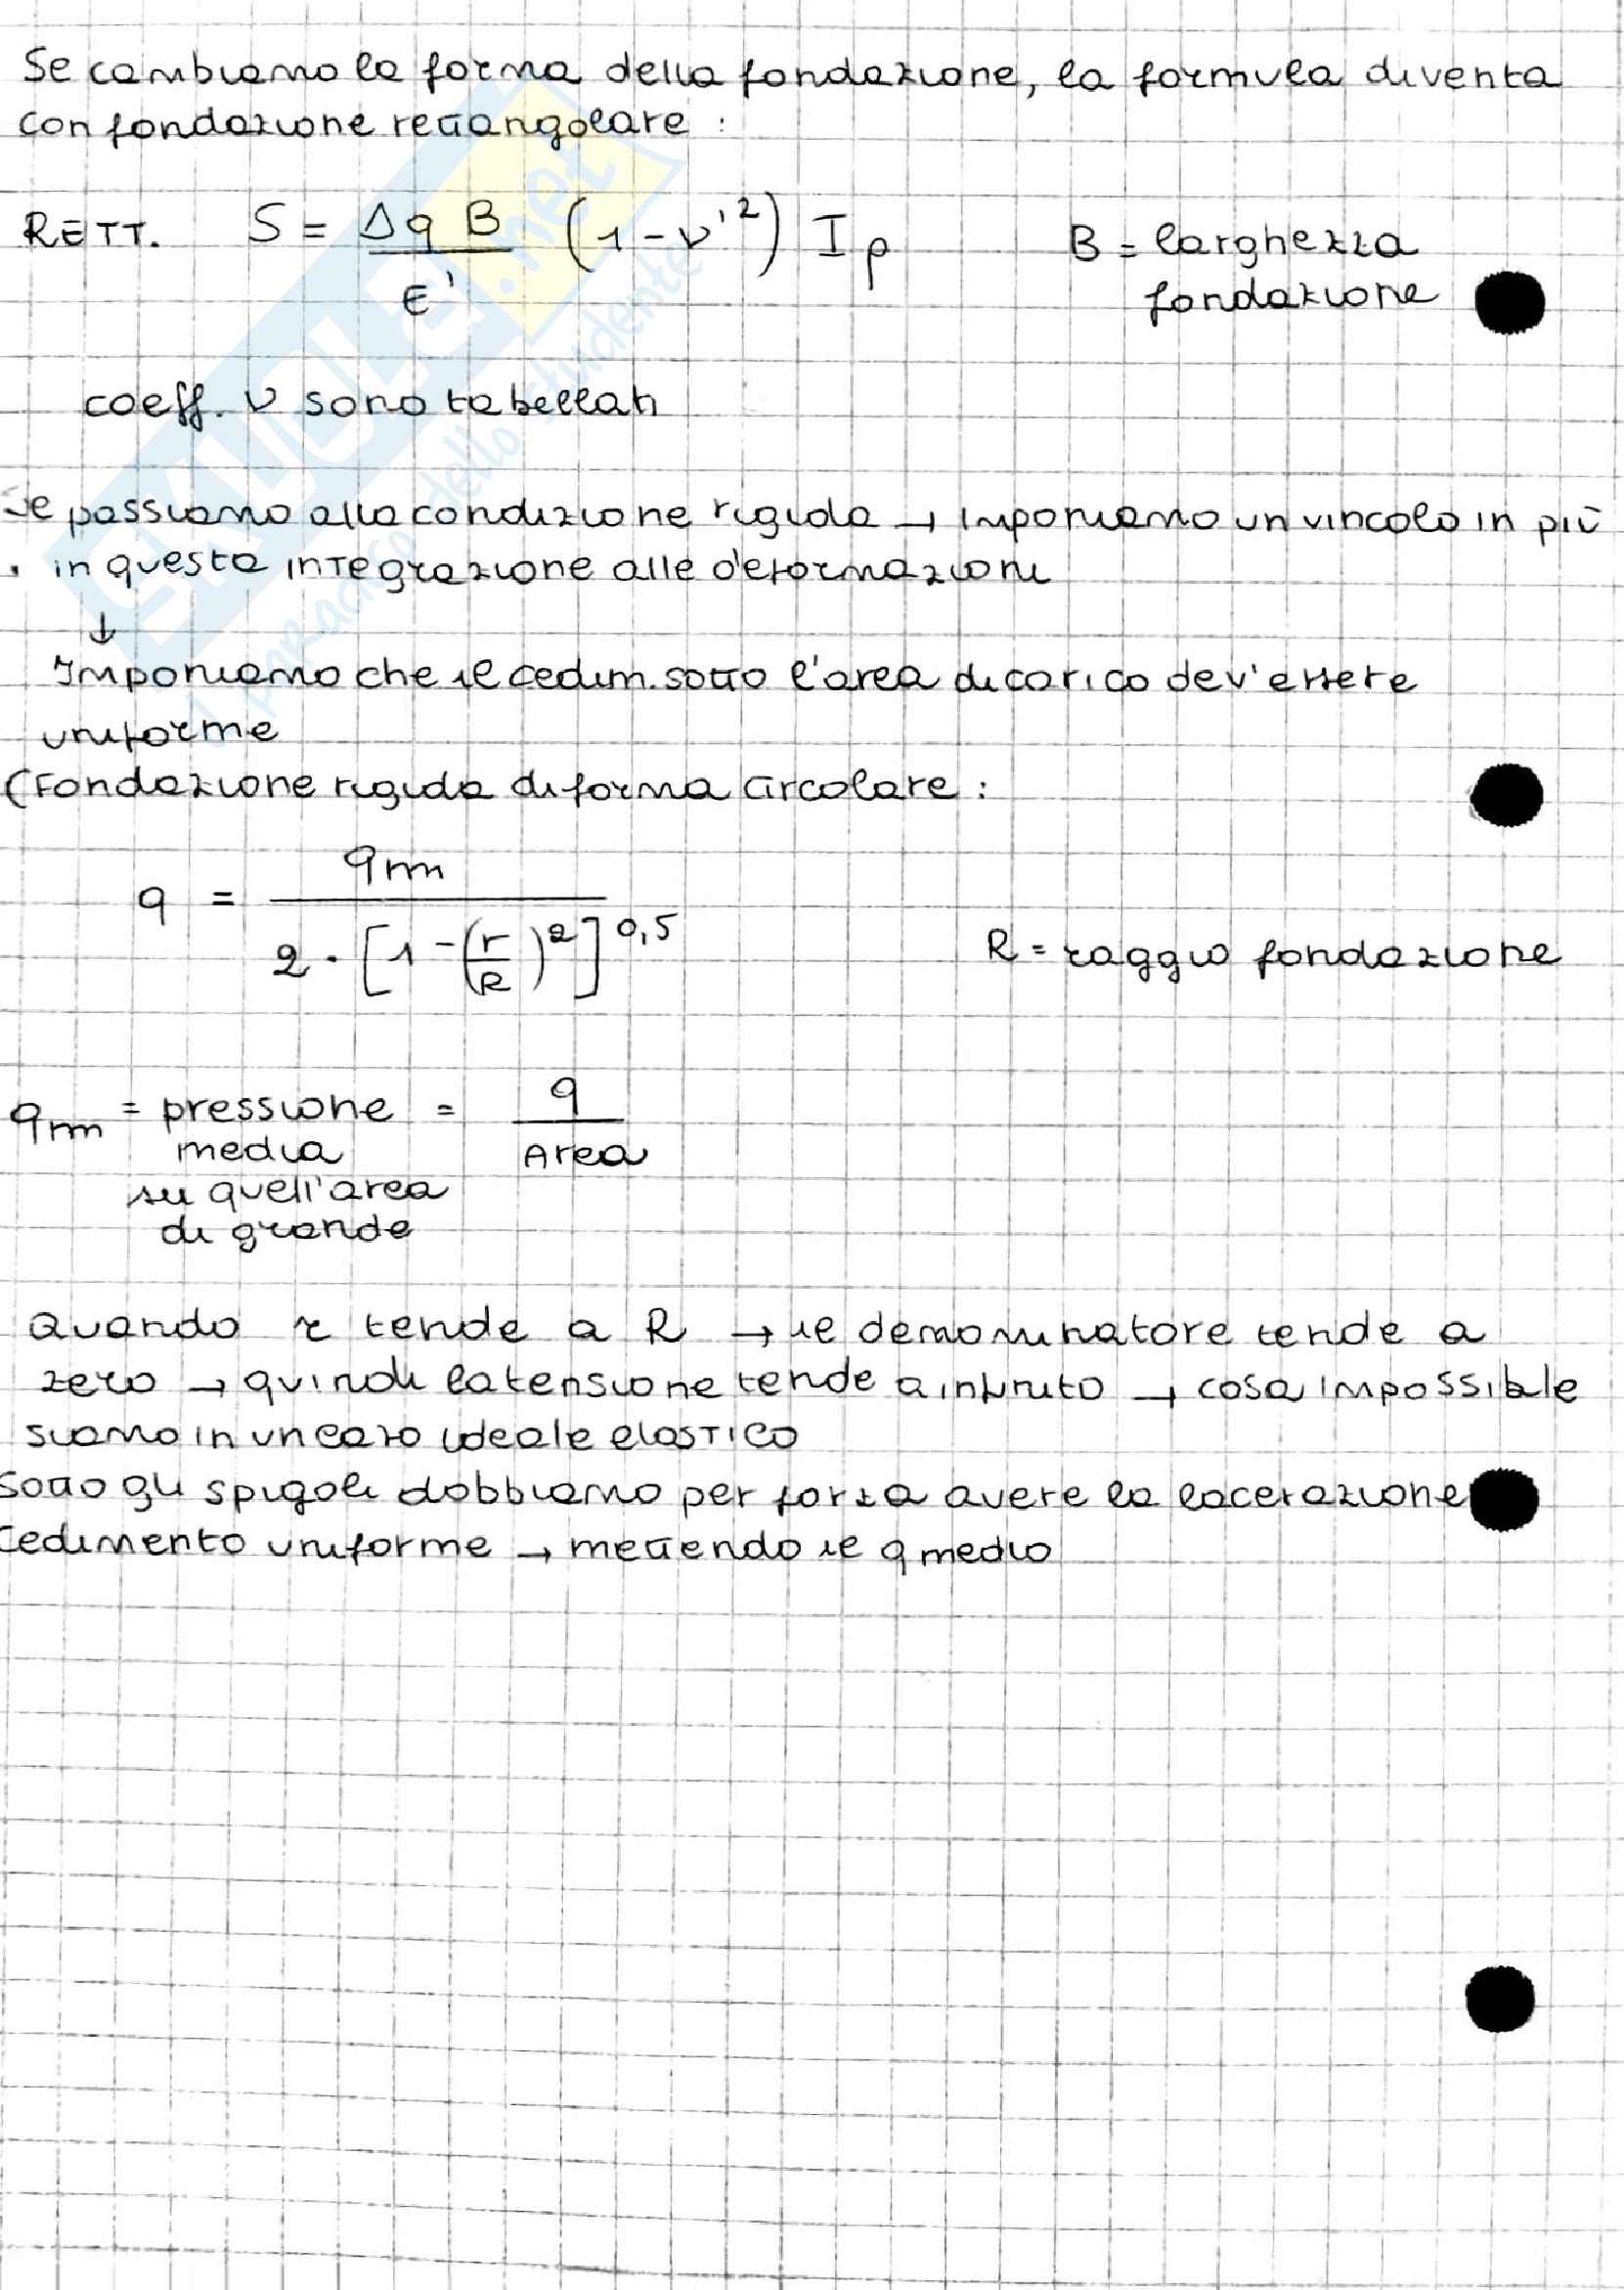 Se cambiamo la forma della fondazione, la formula diventa
con fondazione rettangolare :
RETT. S = Δq B / E' (1-ν'²) Iρ
B = larghezza
fondazione
coeff. ν sono tabellati
Se passiamo alla condizione rigida → imponiamo un vincolo in più
in questa integrazione alle deformazioni
↓
Imponiamo che il cedim. sotto l'area di carico dev'essere
uniforme
(Fondazione rigida di forma circolare :
q = qm / 2 · [1-(r/R)²]^0,5
R = raggio fondazione
qm = pressione = q / Area
media
su quell'area
di grande
Quando r tende a R → il denominatore tende a
zero → quindi la tensione tende a infinito → cosa impossibile
siamo in un caso ideale elastico
Sotto gli spigoli dobbiamo per forza avere la lacerazione
Cedimento uniforme → mettendo il q medio
SKUOLA.net
il paradiso dello studente